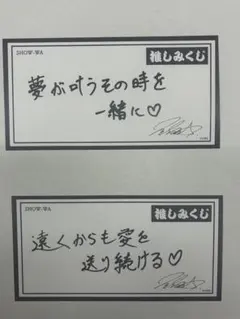 SHOW-WA
推しみくじ
夢が叶うその時を
一緒に♡
SHOW-WA
推しみくじ
遠くからも愛を
送り続ける♡